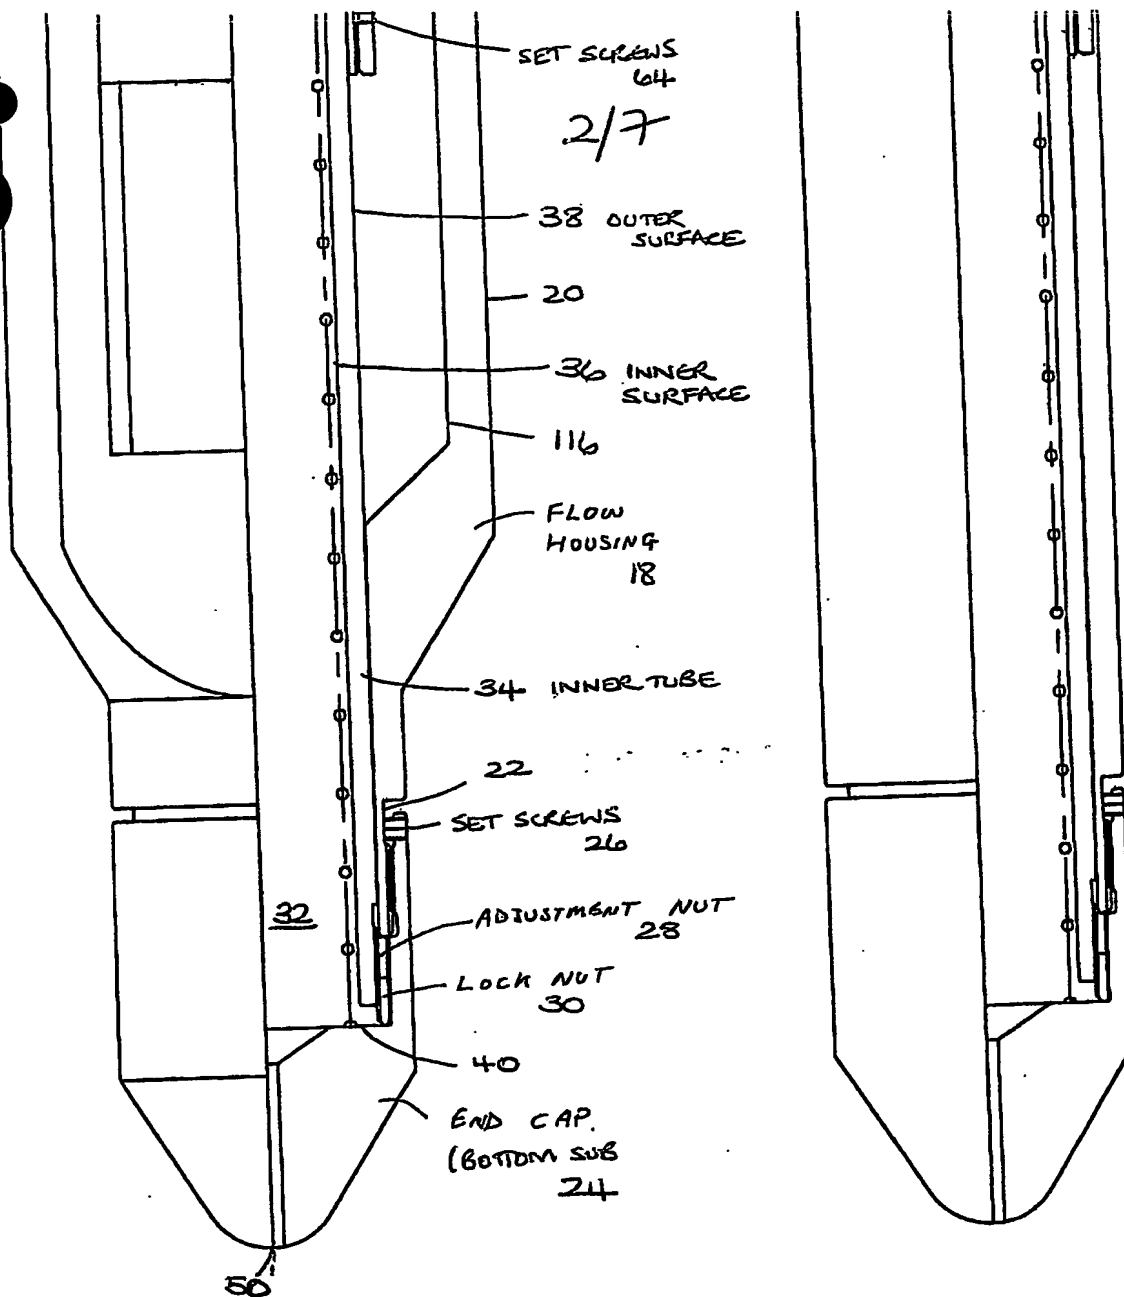 SET SCREWS
64
2/7
38 OUTER
SURFACE
20
36 INNER
SURFACE
116
FLOW
HOUSING
18
34 INNER TUBE
22
SET SCREWS
26
32
ADJUSTMENT NUT
28
LOCK NUT
30
40
END CAP.
(BOTTOM SUB
24
50